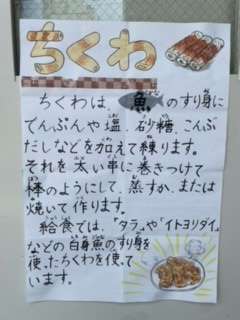 ちくわ
ちくわは、魚のすり身に
でんぷんや塩、砂糖、こんぶ
だしなどを加えて練ります。
それを太い串に巻きつけて
棒のようにして、蒸すか、または
焼いて作ります。
給食では、「タラ」や「イトヨリダイ」
などの白身魚のすり身を
使ったちくわを使って
います。